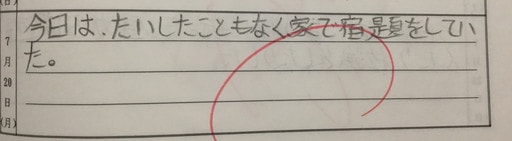 今日は、たいしたこともなく家で宿題をしてい
た。
7
月
20
日
(月)